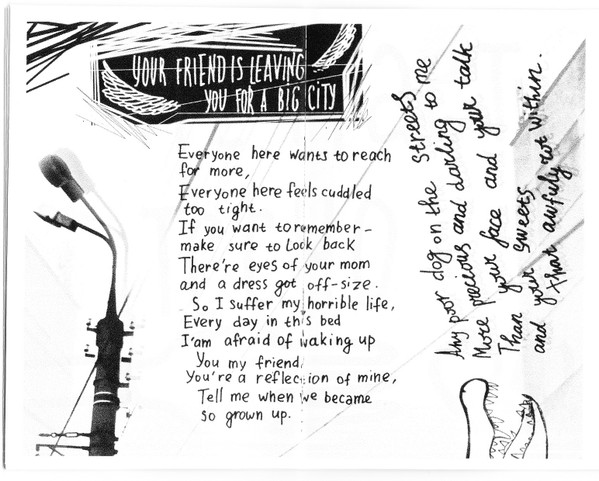 YOUR FRIEND IS LEAVING
YOU FOR A BIG CITY
Everyone here wants to reach
for more,
Everyone here feels cuddled
too tight.
If you want to remember –
make sure to Look back
There're eyes of your mom
and a dress got off-size.
So I suffer my horrible life,
Every day in this bed
I'am afraid of waking up
You my friend,
You're a reflection of mine,
Tell me when we became
so grown up.
Any poor dog on the streets
More precious and darling to me
Than your face and your talk
and your sweets
that awfuly rot within.